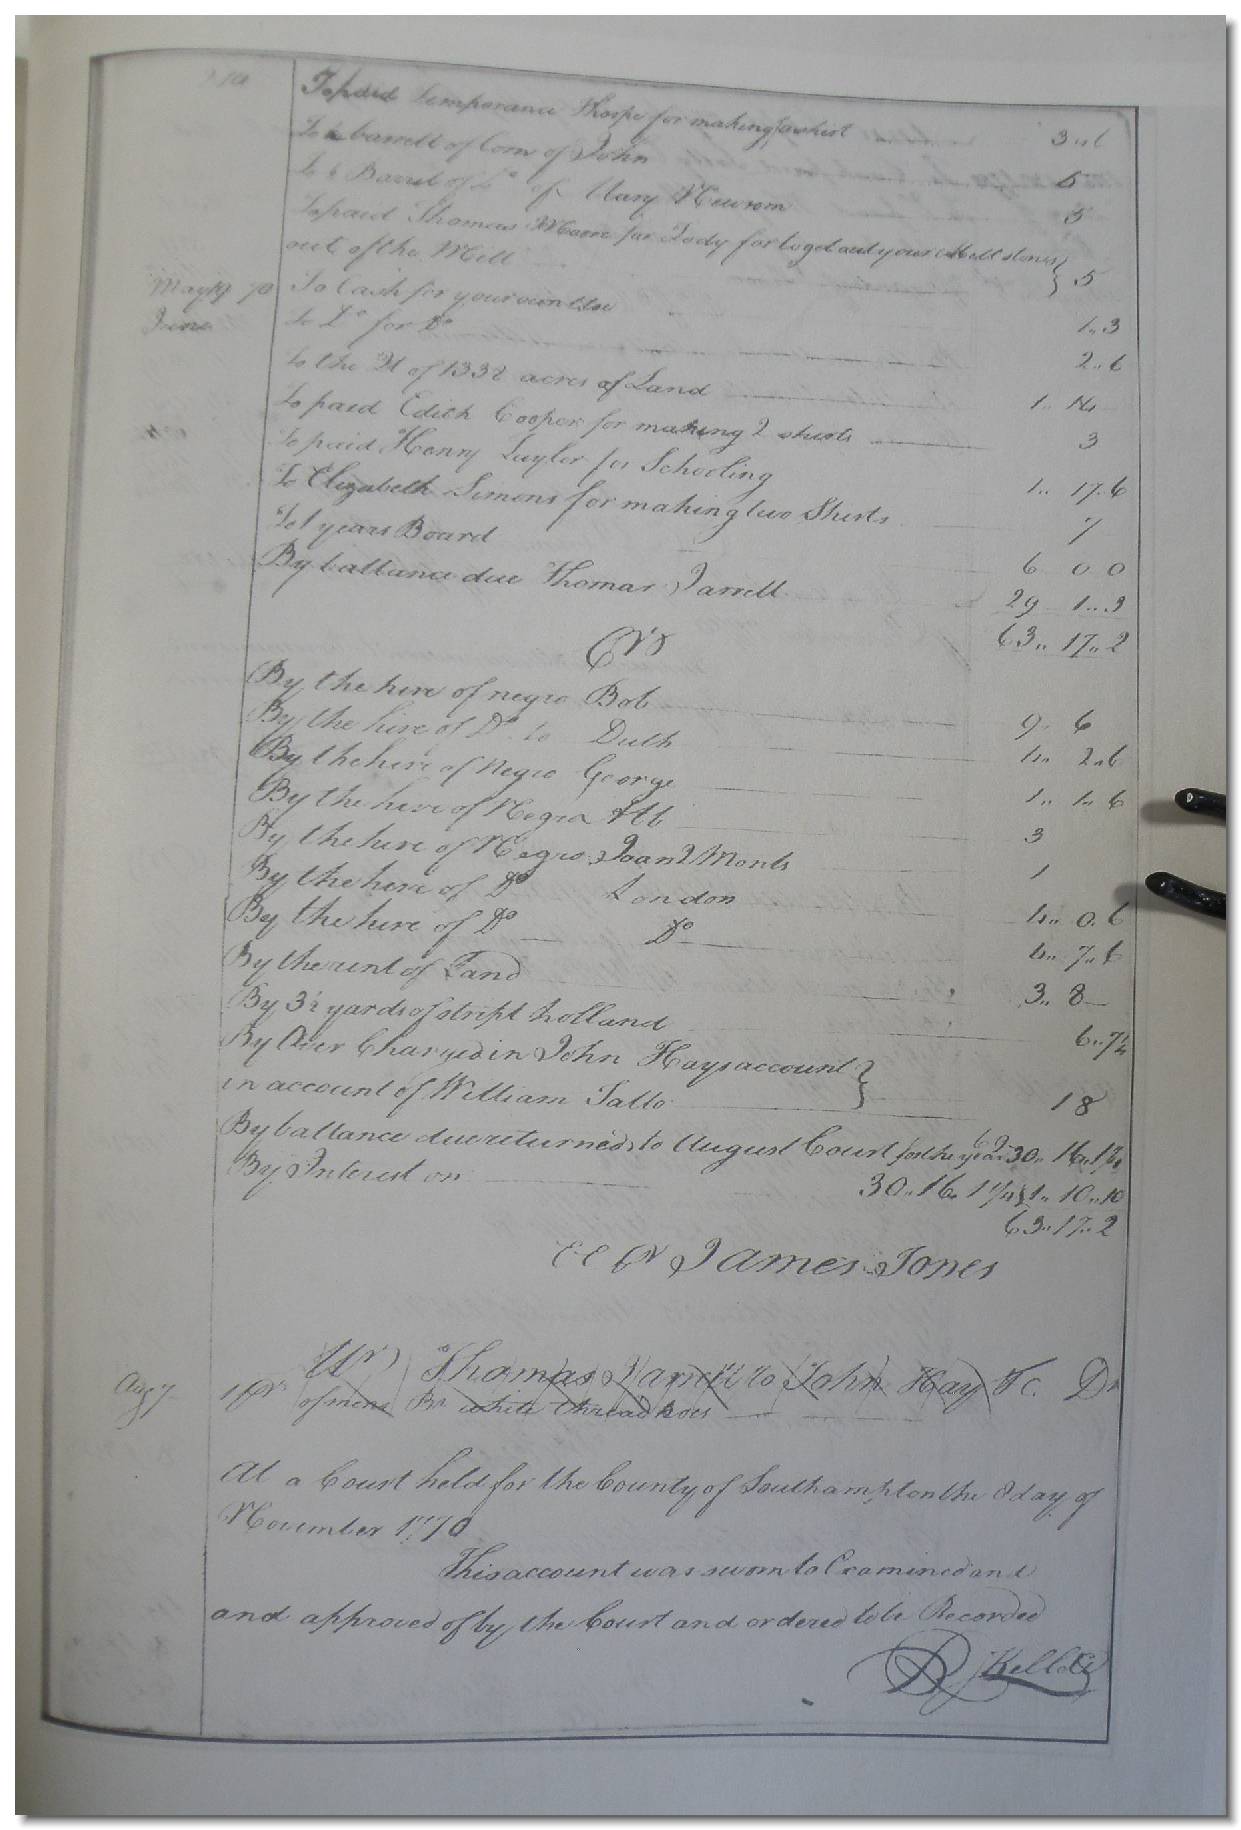 To paid Temperance Thorpe for making a shirt 3..6
To a barrell of Corn of John 5
To a Barrel of Do of Mary Newsom 5
To paid Thomas Moore for Jody for to get out your Mill stones
out of the Mill } 5
May 19 70 To Cash for your own Use 1..3
June To Do for Do 2..6
To the of 1332 acres of Land 1.. 14
To paid Edith Cooper for making 2 shirts 3
To paid Henry Taylor for Schooling 1.. 17..6
To Elizabeth Simons for making two Shirts 7
To 1 years Board 6 0 0
By ballance due Thomas Jarrell 29 1..3
63.. 17..2
Crs
By the hire of negro Bob 9.. 6
By the hire of Do to Duth 4.. 2..6
By the hire of Negro George 1.. 1..6
By the hire of Negro Abb 3
By the hire of Negro Joan 2 Monts 1
By the hire of Do London 4.. 0..6
By the hire of Do Do 4.. 7..6
By the rent of Land 3.. 8
By 3½ yards of stript holland 6..7½
By Over Charged in John Hays account }
in account of William Tallo 18
By ballance due returned to August Court for the year 69 30.. 16..1¼
By Interest on 30..16..1¼ } 1.. 10..10
63..17..2
E E Pr James Jones
Mr Thomas Jarrell to John Hay & C. Dr
Aug 7 1 Pr of mens Pr white thread hoes
At a Court held for the County of Southampton the 8 day of
November 1770
This account was sworn to Examined and
and approved of by the Court and ordered to be Recorded
R Kello Cl